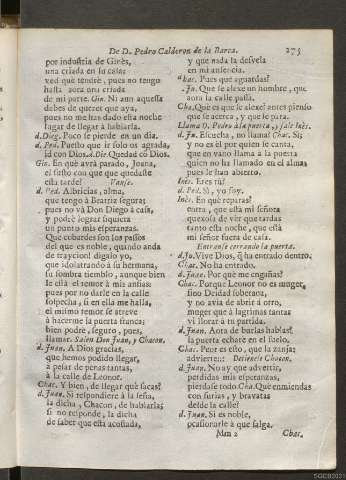 De D. Pedro Calderon de la Barca. 275
por industria de Ginès,
una criada en su casa;
ved què tendrè, pues no tengo
hasta aora una criada
de mi parte. Gin. Ni aun aquessa
debes de querer que aya,
pues no me has dado esta noche
lugar de llegar à hablarla.
d. Dieg. Poco se pierde en un dia.
d. Ped. Puesto que ir solo os agrada,
id con Dios. d. Die. Quedad con Dios.
Gin. En què avrà parado, Juana,
el susto con que quedaste
esta tarde? Vanse.
d. Ped. Albricias, alma,
que tengo à Beatriz segura;
pues no và Don Diego à casa,
y podrè lograr siquiera
un punto mis esperanzas.
Què cobardes son los passos
del que es noble, quando anda
de traycion! digalo yo,
que idolatrando à su hermana,
su sombra tiemblo, aunque bien
le està el temor à mis ansias;
pues por no darle en la calle
sospecha, si en ella me halla,
el mismo temor se atreve
à hacerme la puerta franca:
bien podrè, seguro, pues,
llamar. Salen Don Juan, y Chacon.
d. Juan. A Dios gracias,
que hemos podido llegar,
à pesar de penas tantas,
à la calle de Leonor.
Chac. Y bien, de llegar què sacas?
d. Juan. Si respondiere à la seña,
la dicha, Chacon, de hablarla;
si no responde, la dicha
de saber que està acostada,
y que nada la desvela
en mi ausencia.
Chac. Pues què aguardas?
d. Ju. Que se alexe un hombre, que
aora la calle passa.
Cha. Què es que se alexe? antes pienso
que se acerca, y que se para.
Llama D. Pedro à la puerta, y sale Inès.
d. Ju. Escucha, no llama? Chac. Si;
y no es èl por quien se canta,
que en vano llama à la puerta
quien no ha llamado en el alma;
pues le han abierto.
Inès. Eres tu?
d. Ped. Si, yo soy.
Inès. En què reparas?
entra, que està mi señora
quexosa de vèr que tardas
tanto esta noche, que està
mi señor fuera de casa.
Entranse cerrando la puerta.
d. Ju. Vive Dios, q̃ ha entrado dentro.
Chac. No ha entrado.
d. Juan. Por què me engañas?
Chac. Porque Leonor no es muger,
sino Deidad soberana,
y no avia de abrir à otro,
muger que à lagrimas tantas
vì llorar à tu partida.
d. Juan. Aora de burlas hablas?
la puerta echarè en el suelo.
Chac. Peor es esto, que la zanja;
advierte:: Detienele Chacon.
d. Juan. No ay que advertir,
perdidas mis esperanzas,
pierdase todo. Cha. Què enmiendas
con furias, y bravatas
desde la calle?
d. Juan. Si es noble,
ocasionarle à que salga.
Mm 2 Chac.
SGCB2021